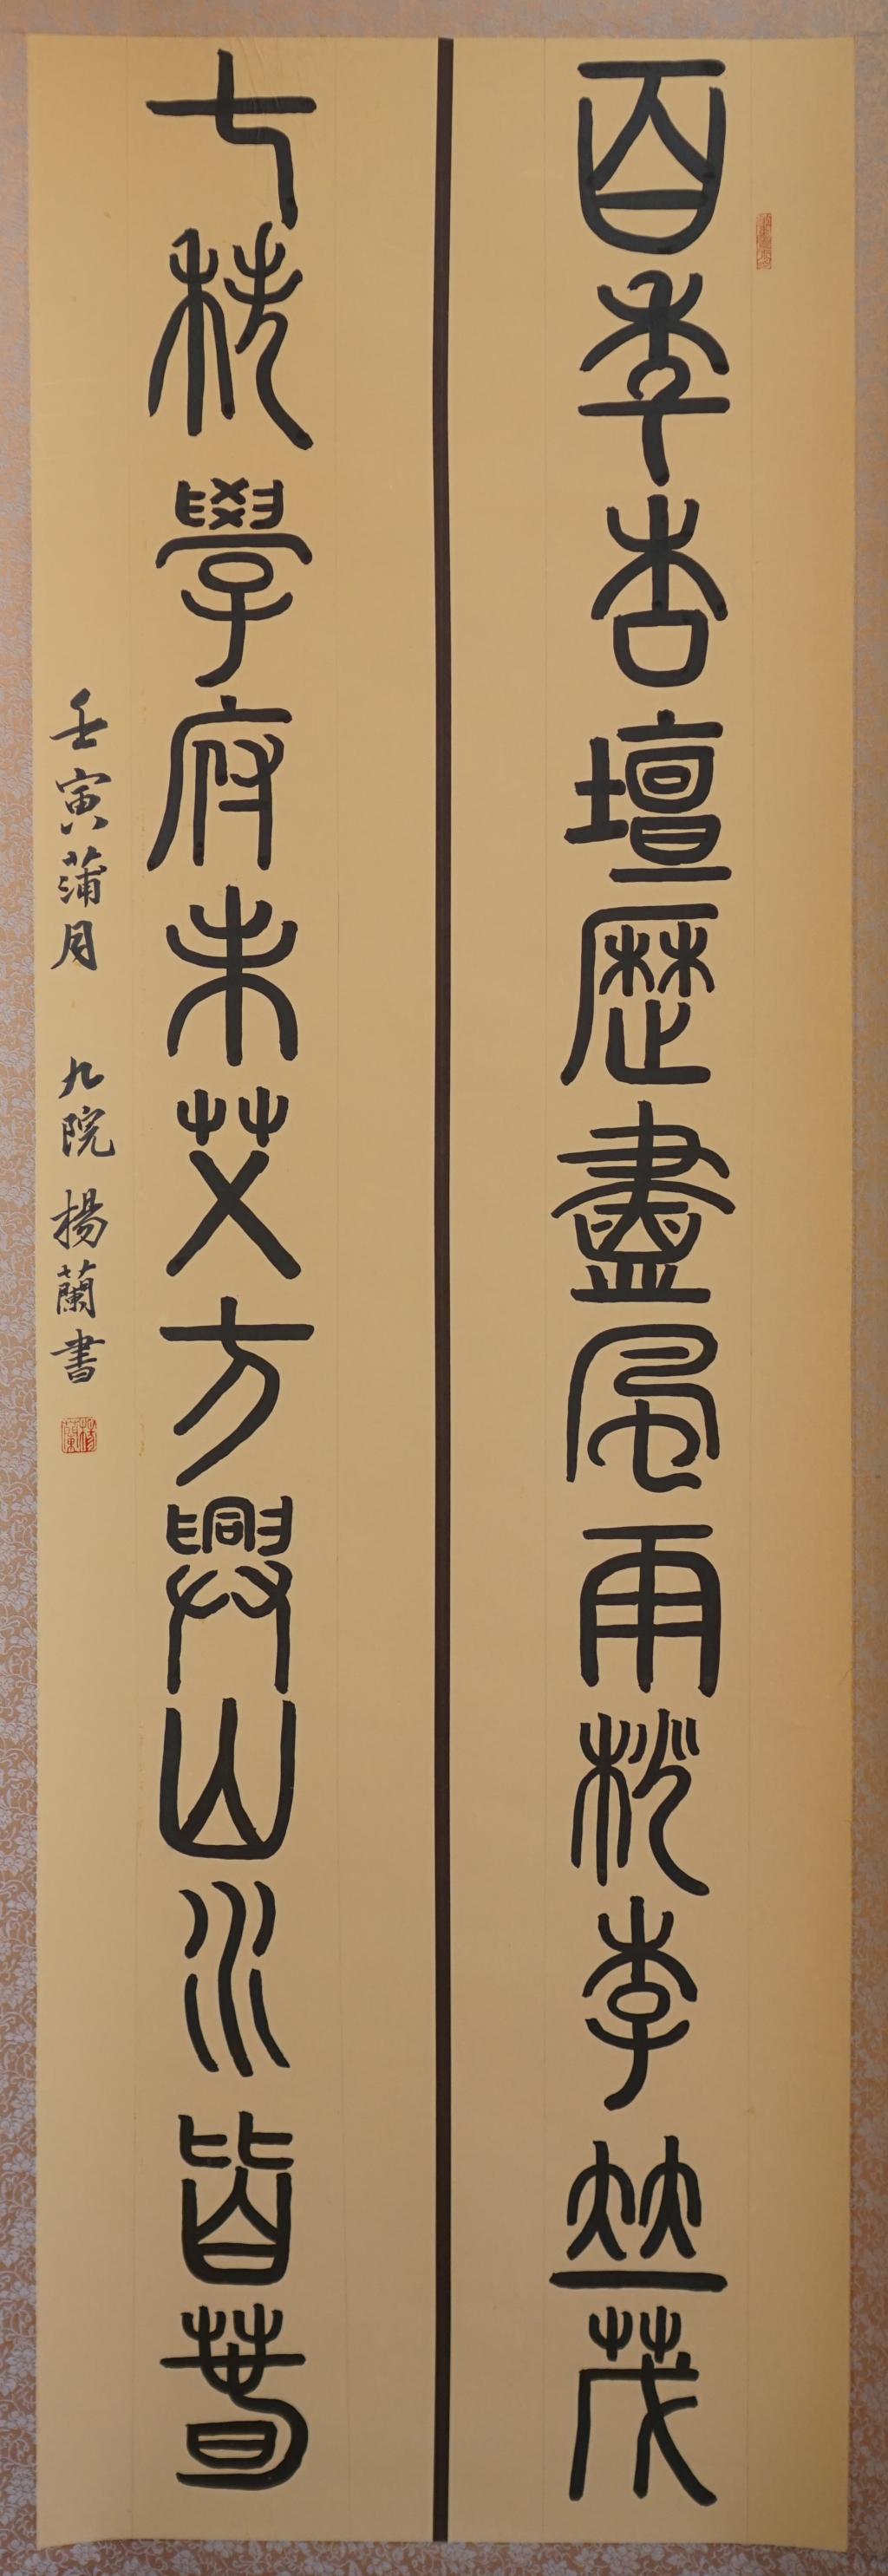 百年杏壇歷盡風雨桃李竝茂
七秩學府未艾方興山水皆春
壬寅蒲月 九院楊蘭書
楊蘭